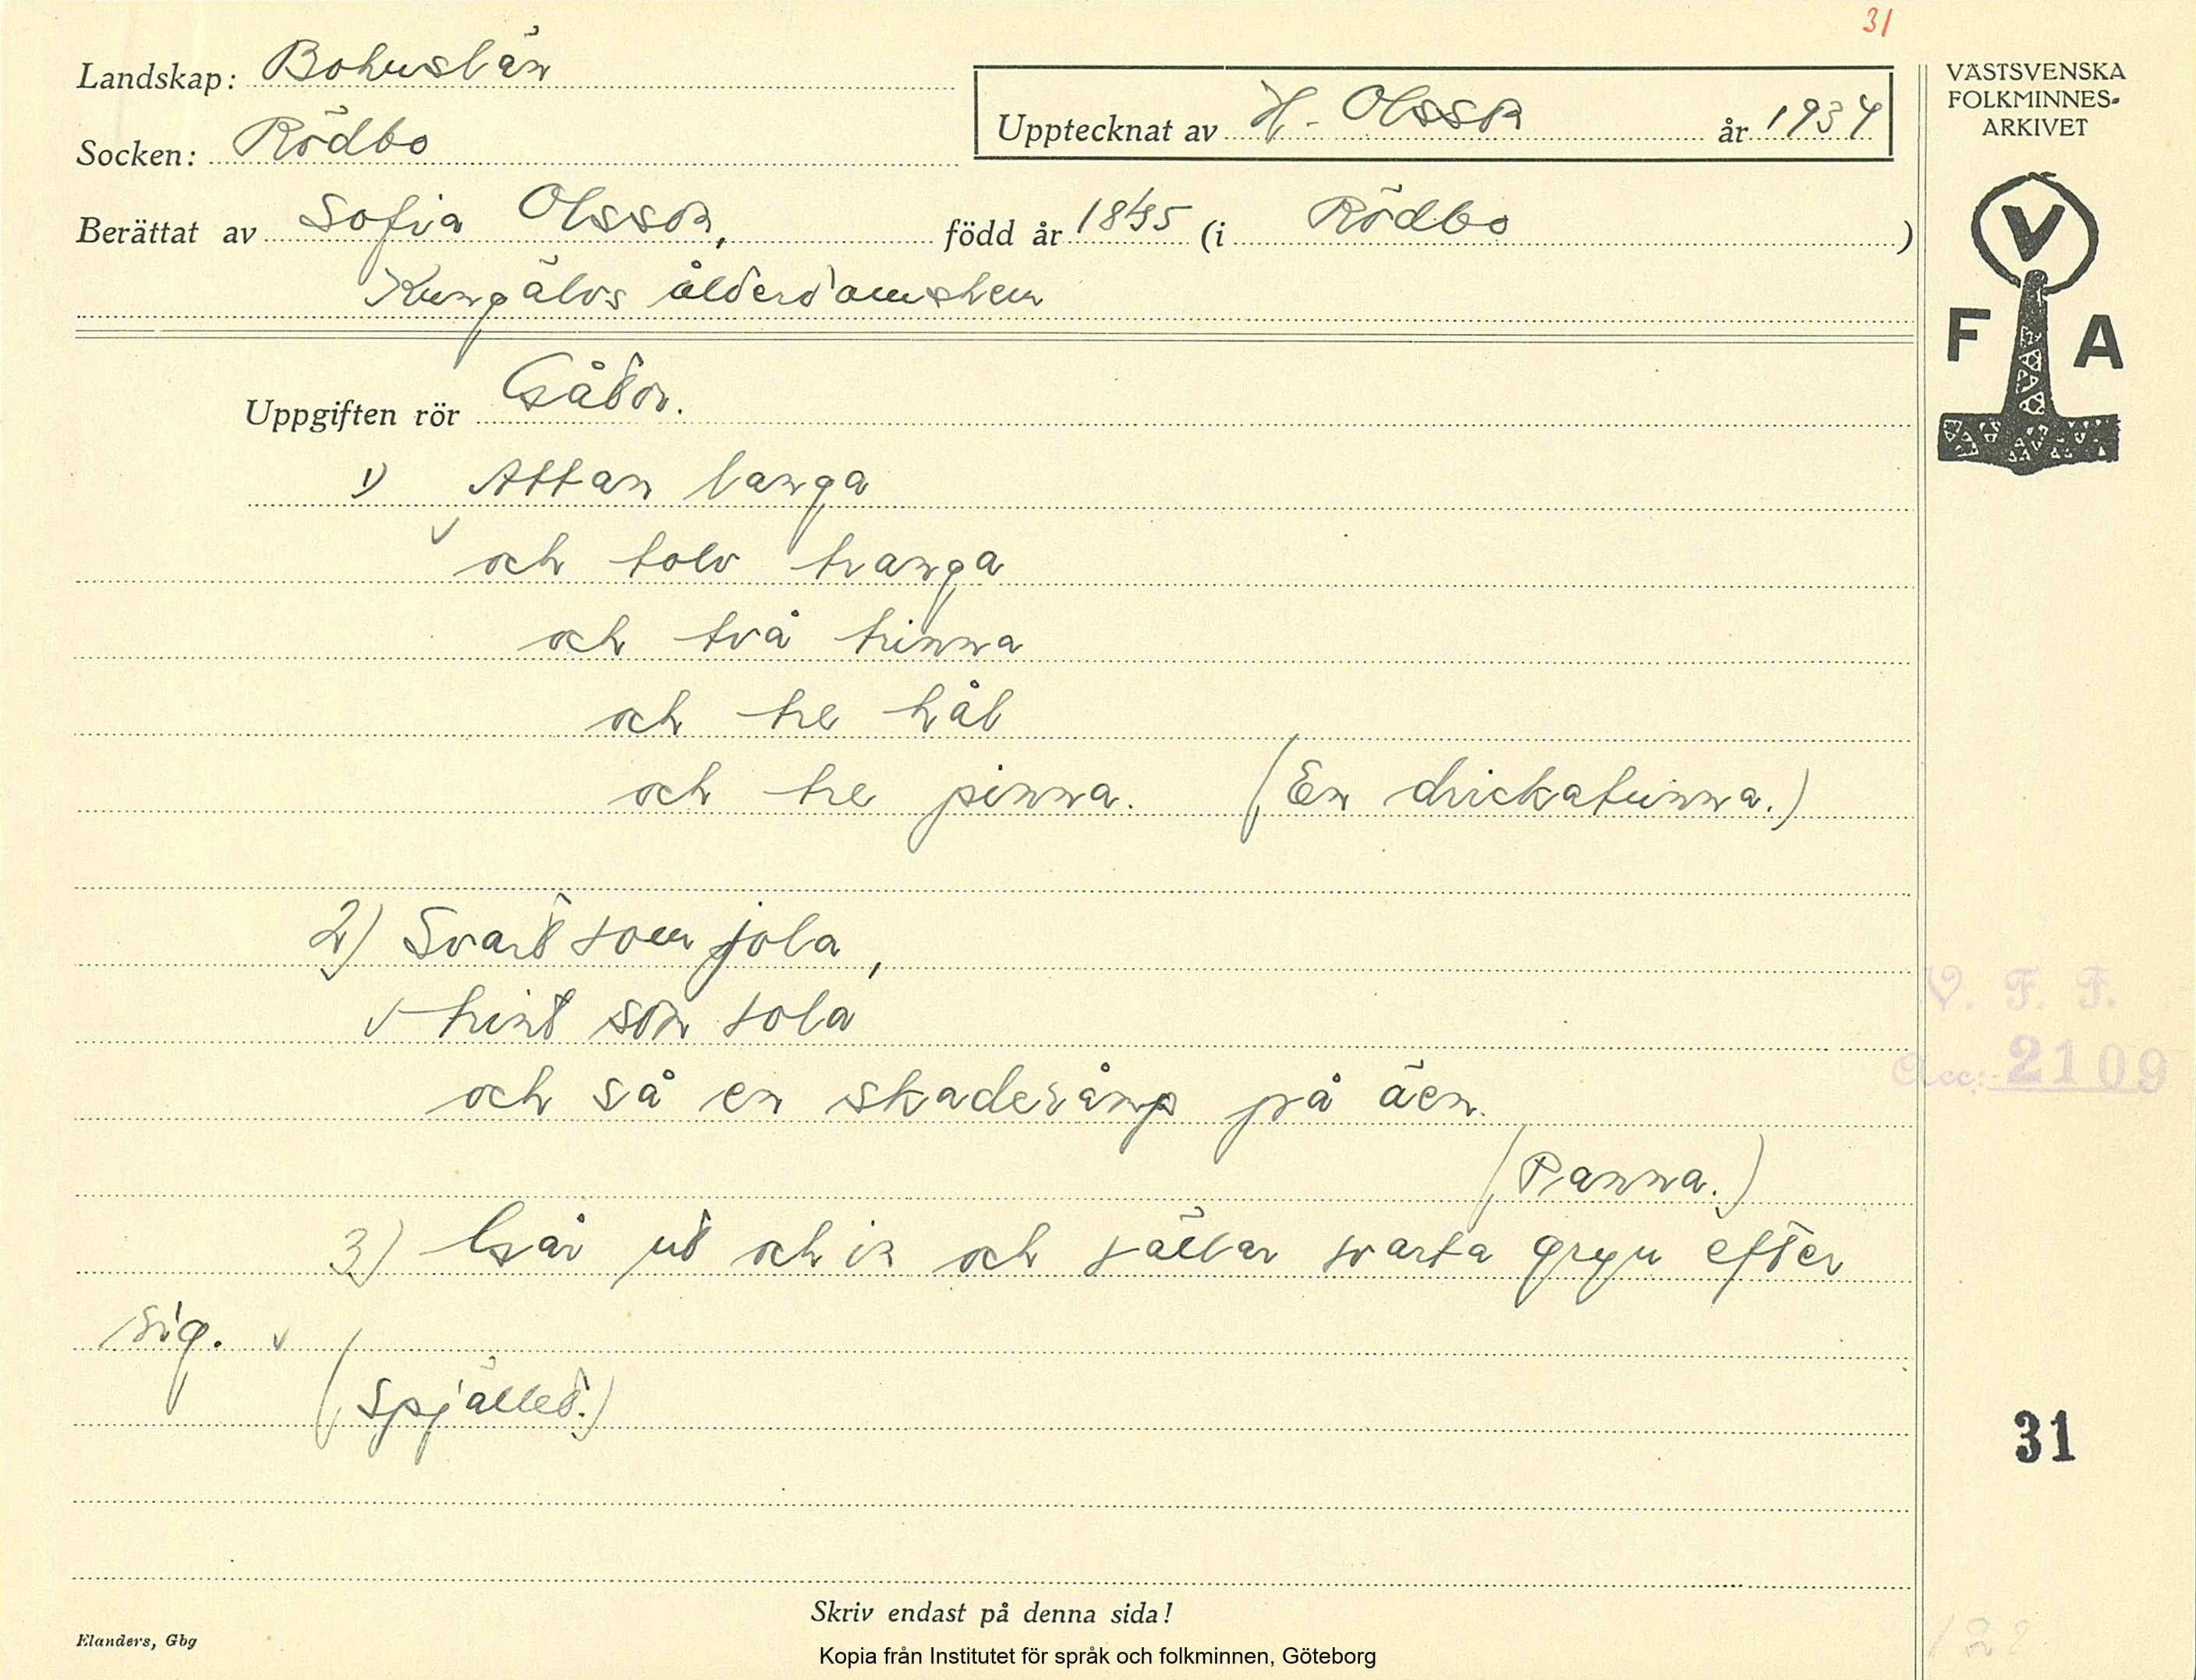 31
Landskap: Bohuslän
Upptecknat av H. Olsson år 1934
Socken: Rödbo
Berättat av Sofia Olsson, född år (i Rödbo)
Kungälvs ålderdomshem
VÄSTSVENSKA
FOLKMINNES-
ARKIVET
V
F A
Uppgiften rör Gåtor.
1) Attan langa
och tolv tranga
och två trinna
och tre hål
och tre pinna. (En drickatunna.)
2) Svart som jola,
trint som sola
och så en skaderåmp på äen.
(Panna.)
3) Går ut och in och sätter svarta gryn efter
sig.
(Spjället.)
V. F. F.
Acc: 2109
31
Skriv endast på denna sida!
Elanders, Gbg
Kopia från Institutet för språk och folkminnen, Göteborg